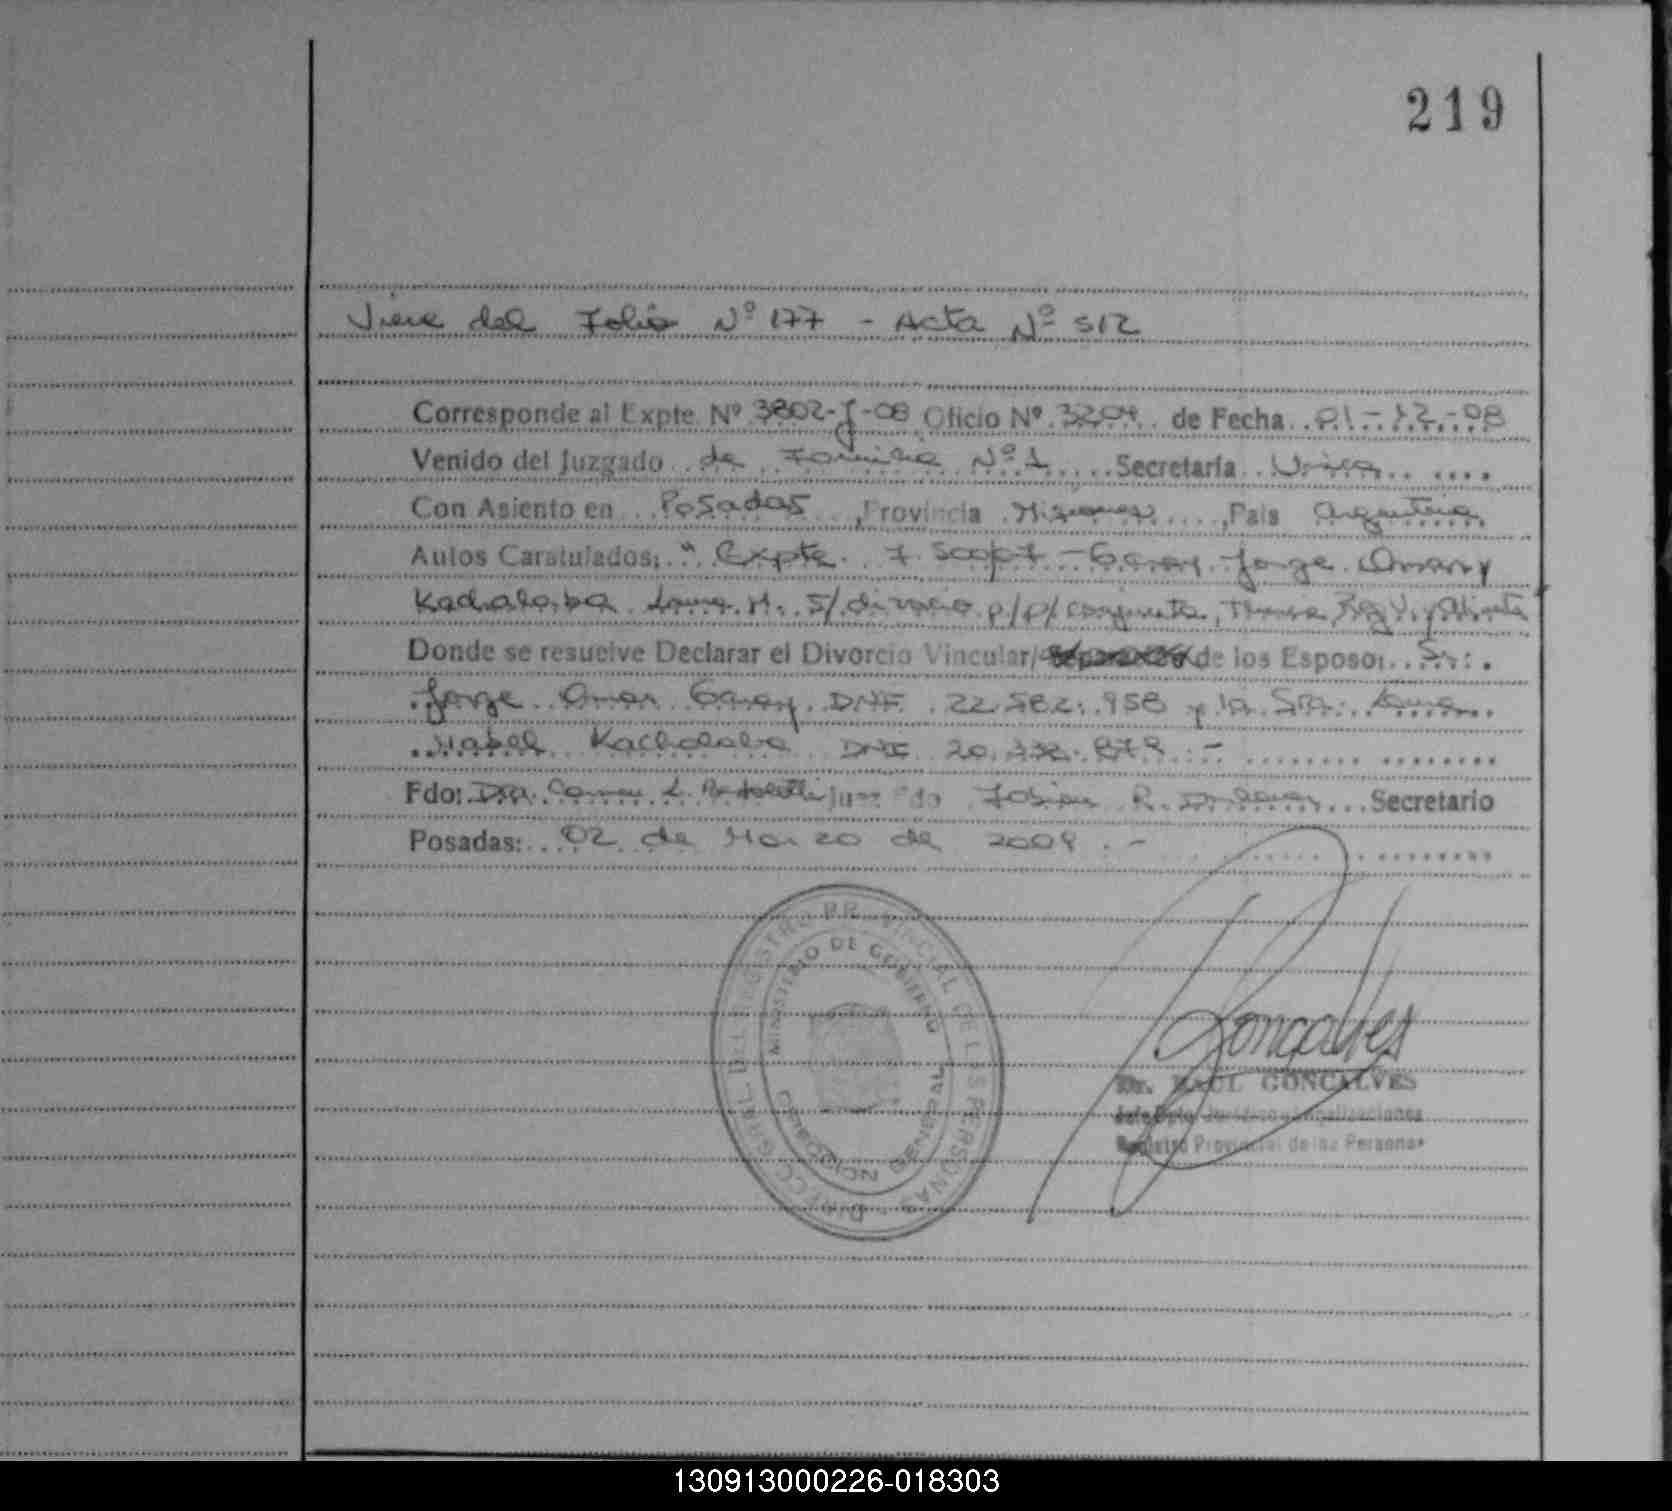 219
Viene del Folio Nº 177 - Acta Nº 512
Corresponde al Expte. Nº 3802-J-08 Oficio Nº 3204 de Fecha 01-12-08
Venido del Juzgado de Familia Nº 1 Secretaría Unica
Con Asiento en Posadas, Provincia Misiones, Pais Argentina
Autos Caratulados: " Expte. Garay Jorge Omar y
Kachalaba M. S/ divorcio p/p/ conjunta, Tenencia, y Alimentos
Donde se resuelve Declarar el Divorcio Vincular/ de los Esposos Sr.
Jorge Omar Garay DNI 22.582.958 y la Sra.
Mabel Kachalaba DNI
Fdo: Dra. Juez Fdo Fabian R. Secretario
Posadas: 02 de Marzo de 2009.-
DIRECC. GRAL. DEL REGISTRO PROVINCIAL DE LAS PERSONAS
MINISTERIO DE GOBIERNO
DIRECCION GENERAL
Goncalves
Dr. RAUL GONCALVES
Jefe Dpto. Jurídico
Registro Provincial de las Personas
130913000226-018303